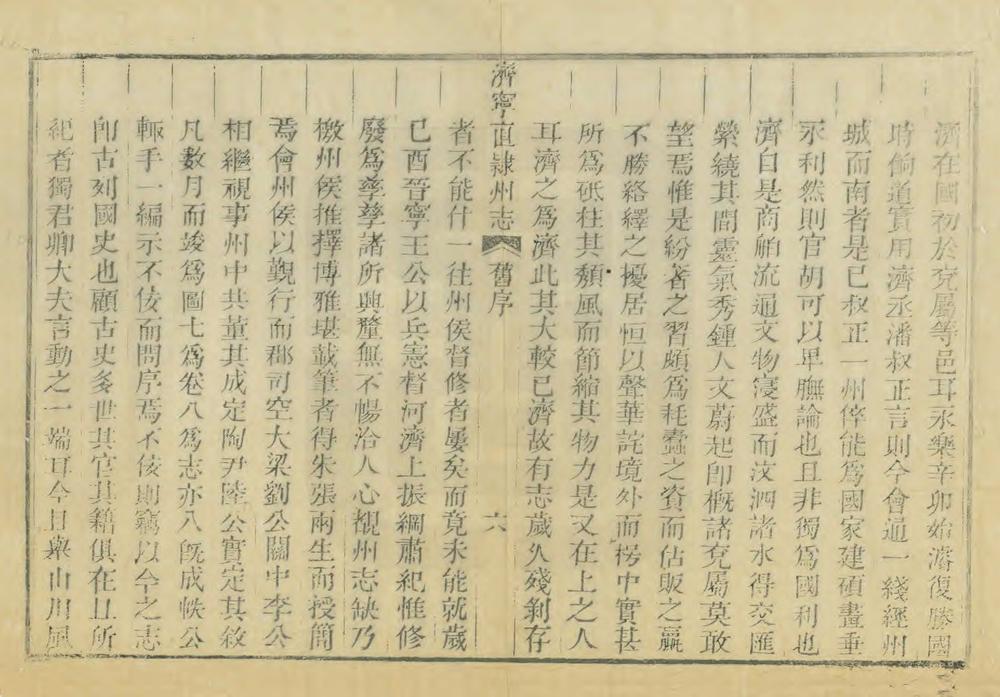 濟在國初於兖屬等邑耳永樂辛卯始濬復勝國
時偷道實用濟丞潘叔正言則今會通一綫經州
城而南者是已叔正一州倅能爲國家建碩畫垂
永利然則官胡可以卑膴論也且非獨爲國利也
濟自是商舶流通文物寖盛而汶泗諸水得交匯
縈繞其間靈氣秀鍾人文蔚起卽槪諸兖屬莫敢
望焉惟是紛奢之習頗爲耗蠹之資而估販之贏
不勝絡繹之擾居恒以聲華詫境外而枵中實甚
所爲砥柱其頽風而節縮其物力是又在上之人
耳濟之爲濟此其大較已濟故有志歲久殘剝存
濟寧直隸州志 舊序 六
者不能什一往州侯督修者屢矣而竟未能就歲
己酉晉寧王公以兵憲督河濟上振綱肅紀惟修
廢爲孳孳諸所興釐無不暢洽人心擥州志缺乃
檄州侯推擇博雅堪載筆者得朱張兩生而授簡
焉會州侯以覲行而郡司空大梁劉公關中李公
相繼視事州中共董其成定陶尹陸公實定其敘
凡數月而竣爲圖七爲卷八爲志亦八旣成帙公
輙手一編示不佞而問序焉不佞則竊以今之志
卽古列國史也顧古史多世其官其籍俱在且所
紀者獨君卿大夫言動之一端耳今日輿山川風